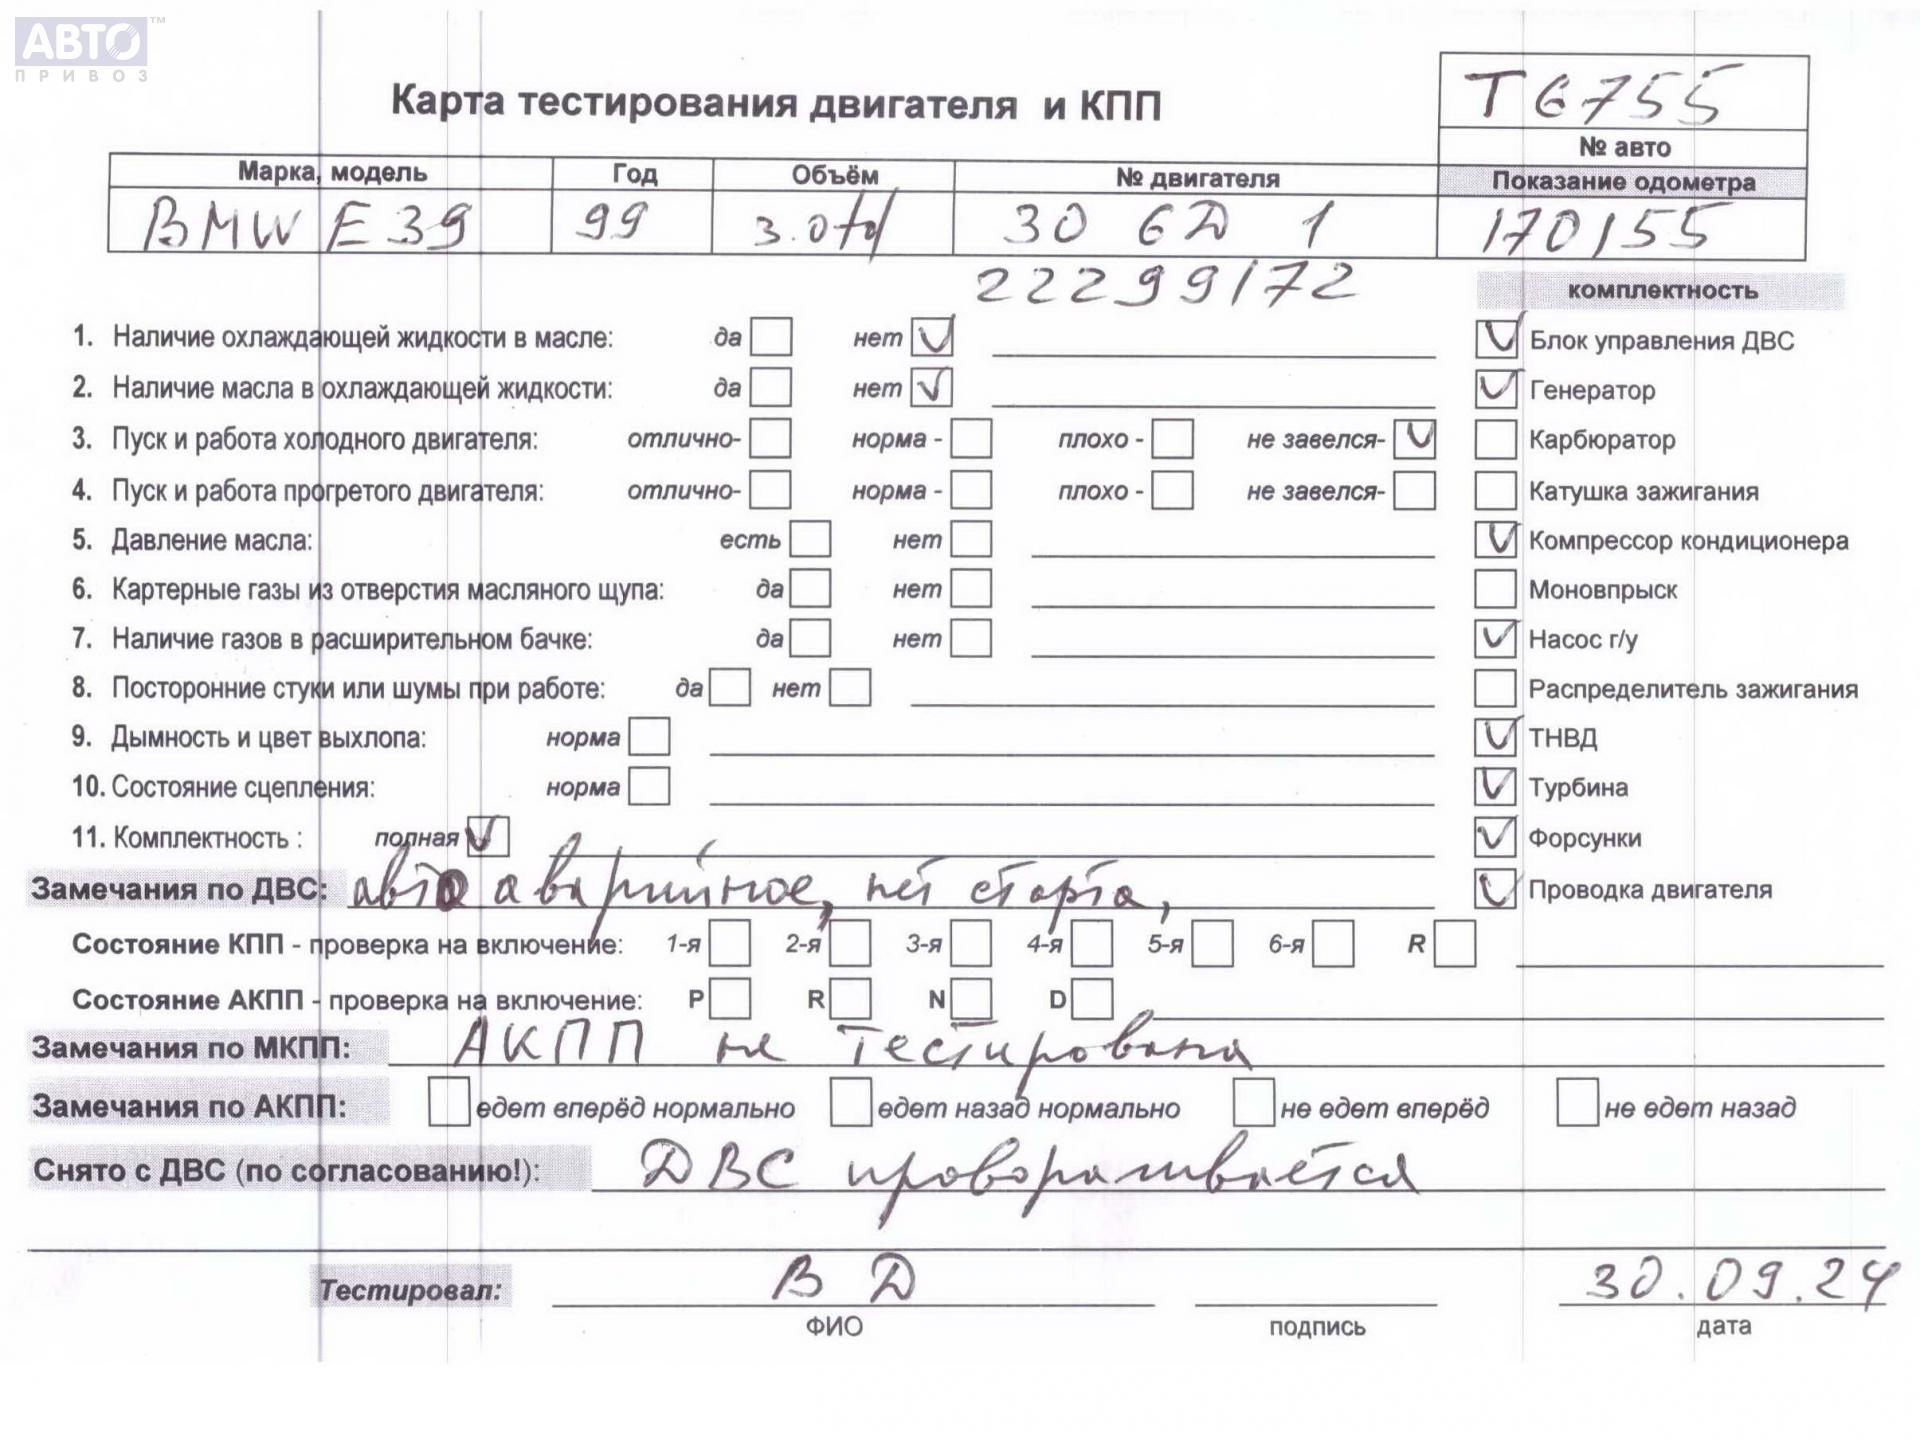 АВТО™
ПРИВОЗ
Карта тестирования двигателя и КПП
T6755
№ авто
Марка, модель Год Объём № двигателя Показание одометра
BMW E39 99 3.0td 30 6D 1 170155
22299172
комплектность
1. Наличие охлаждающей жидкости в масле: да нет Блок управления ДВС
2. Наличие масла в охлаждающей жидкости: да нет Генератор
3. Пуск и работа холодного двигателя: отлично- норма - плохо - не завелся- Карбюратор
4. Пуск и работа прогретого двигателя: отлично- норма - плохо - не завелся- Катушка зажигания
5. Давление масла: есть нет Компрессор кондиционера
6. Картерные газы из отверстия масляного щупа: да нет Моновпрыск
7. Наличие газов в расширительном бачке: да нет Насос г/у
8. Посторонние стуки или шумы при работе: да нет Распределитель зажигания
9. Дымность и цвет выхлопа: норма ТНВД
10. Состояние сцепления: норма Турбина
11. Комплектность : полная Форсунки
Замечания по ДВС: авто аварийное, нет старта, Проводка двигателя
Состояние КПП - проверка на включение: 1-я 2-я 3-я 4-я 5-я 6-я R
Состояние АКПП - проверка на включение: P R N D
Замечания по МКПП: АКПП не тестирована
Замечания по АКПП: едет вперёд нормально едет назад нормально не едет вперёд не едет назад
Снято с ДВС (по согласованию!): ДВС проворачивается
Тестировал: В Д 30.09.24
ФИО подпись дата